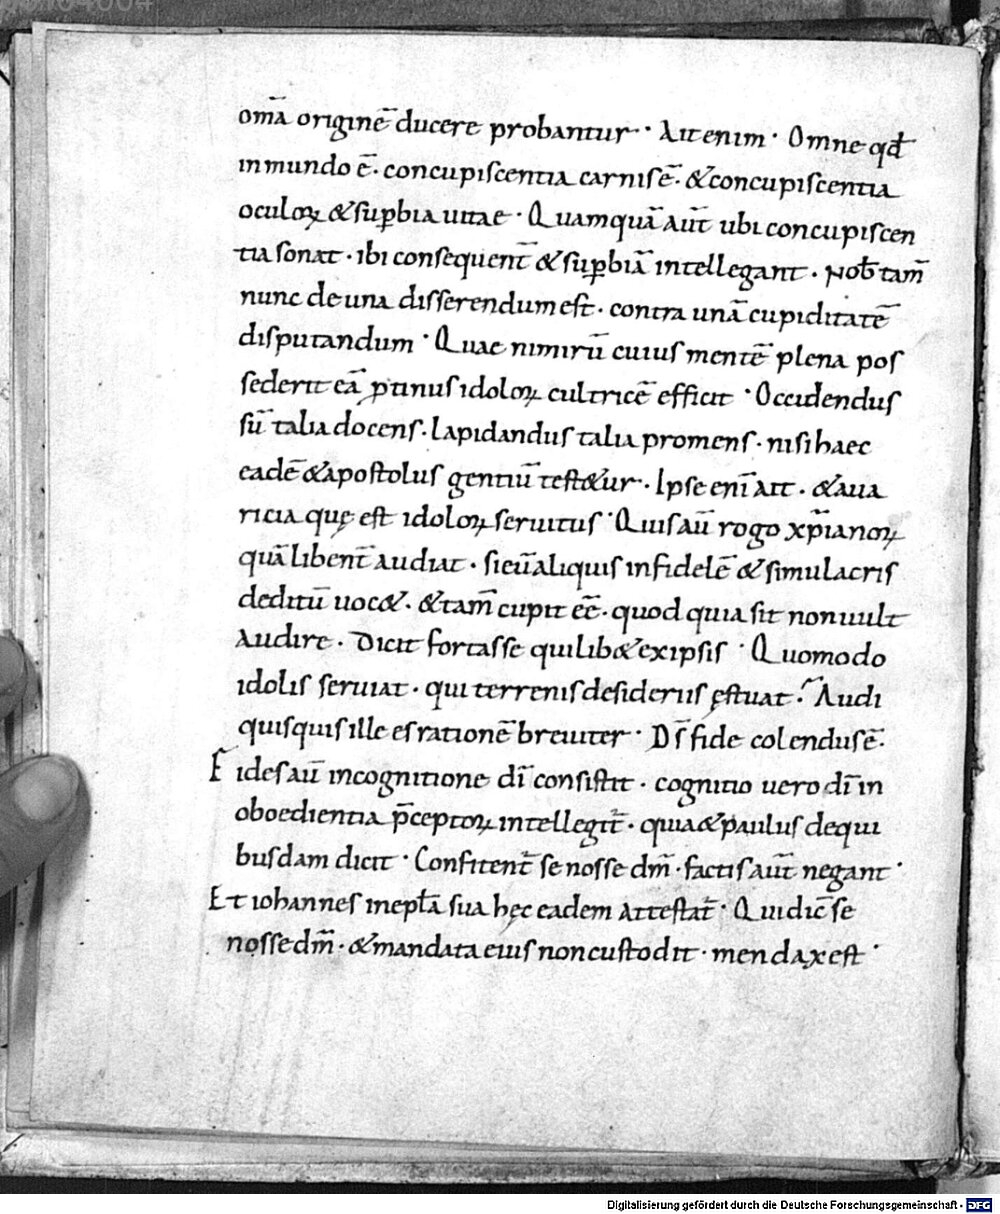 omā originē ducere probantur · Ait enim · Omne qđ
in mundo ē · concupiscentia carnis ē · & concupiscentia
oculoꝝ & suꝑbia uitae · Quamquā aut̄ ubi concupiscen
tia sonat · ibi consequent̄ & suꝑbiā intellegant · Nob̄ tam̄
nunc de una disserendum est · contra unā cupiditatē
disputandum · Quae nimirū cuius mentē plena pos
sederit eā ꝓtinus idoloꝝ cultricē efficit · Occidendus
sū talia docens · lapidandus talia promens · nisi haec
eadē & apostolus gentiū test&ur · Ipse eni̅ ait · & aua
ricia quę est idoloꝝ seruitus · Quis au̅ rogo xp̅ianoꝝ
quā libent̄ audiat · si eū aliquis infidelē & simulacris
deditū uoc& · & tam̄ cupit ee̅ · quod quia sit non uult
audire · Dicit fortasse quilib& ex ipsis · Quomodo
idolis seruiat · qui terrenis desideriis ęstuat · Audi
quisquis ille es rationē breuiter · Ds̅ fide colendus ē ·
Fides au̅ in cognitione di̅ consistit · cognitio uero di̅ in
oboedientia p̅ceptoꝝ intellegit̄ · quia & paulus de qui
busdam dicit · Confitent̄ se nosse dm̅ · factis aut̄ negant ·
Et iohannes in epl̅a sua hęc eadem attestat̄ · Qui dic̅ se
nosse dm̅ · & mandata eius non custodit · mendax est ·
Digitalisierung gefördert durch die Deutsche Forschungsgemeinschaft - DFG